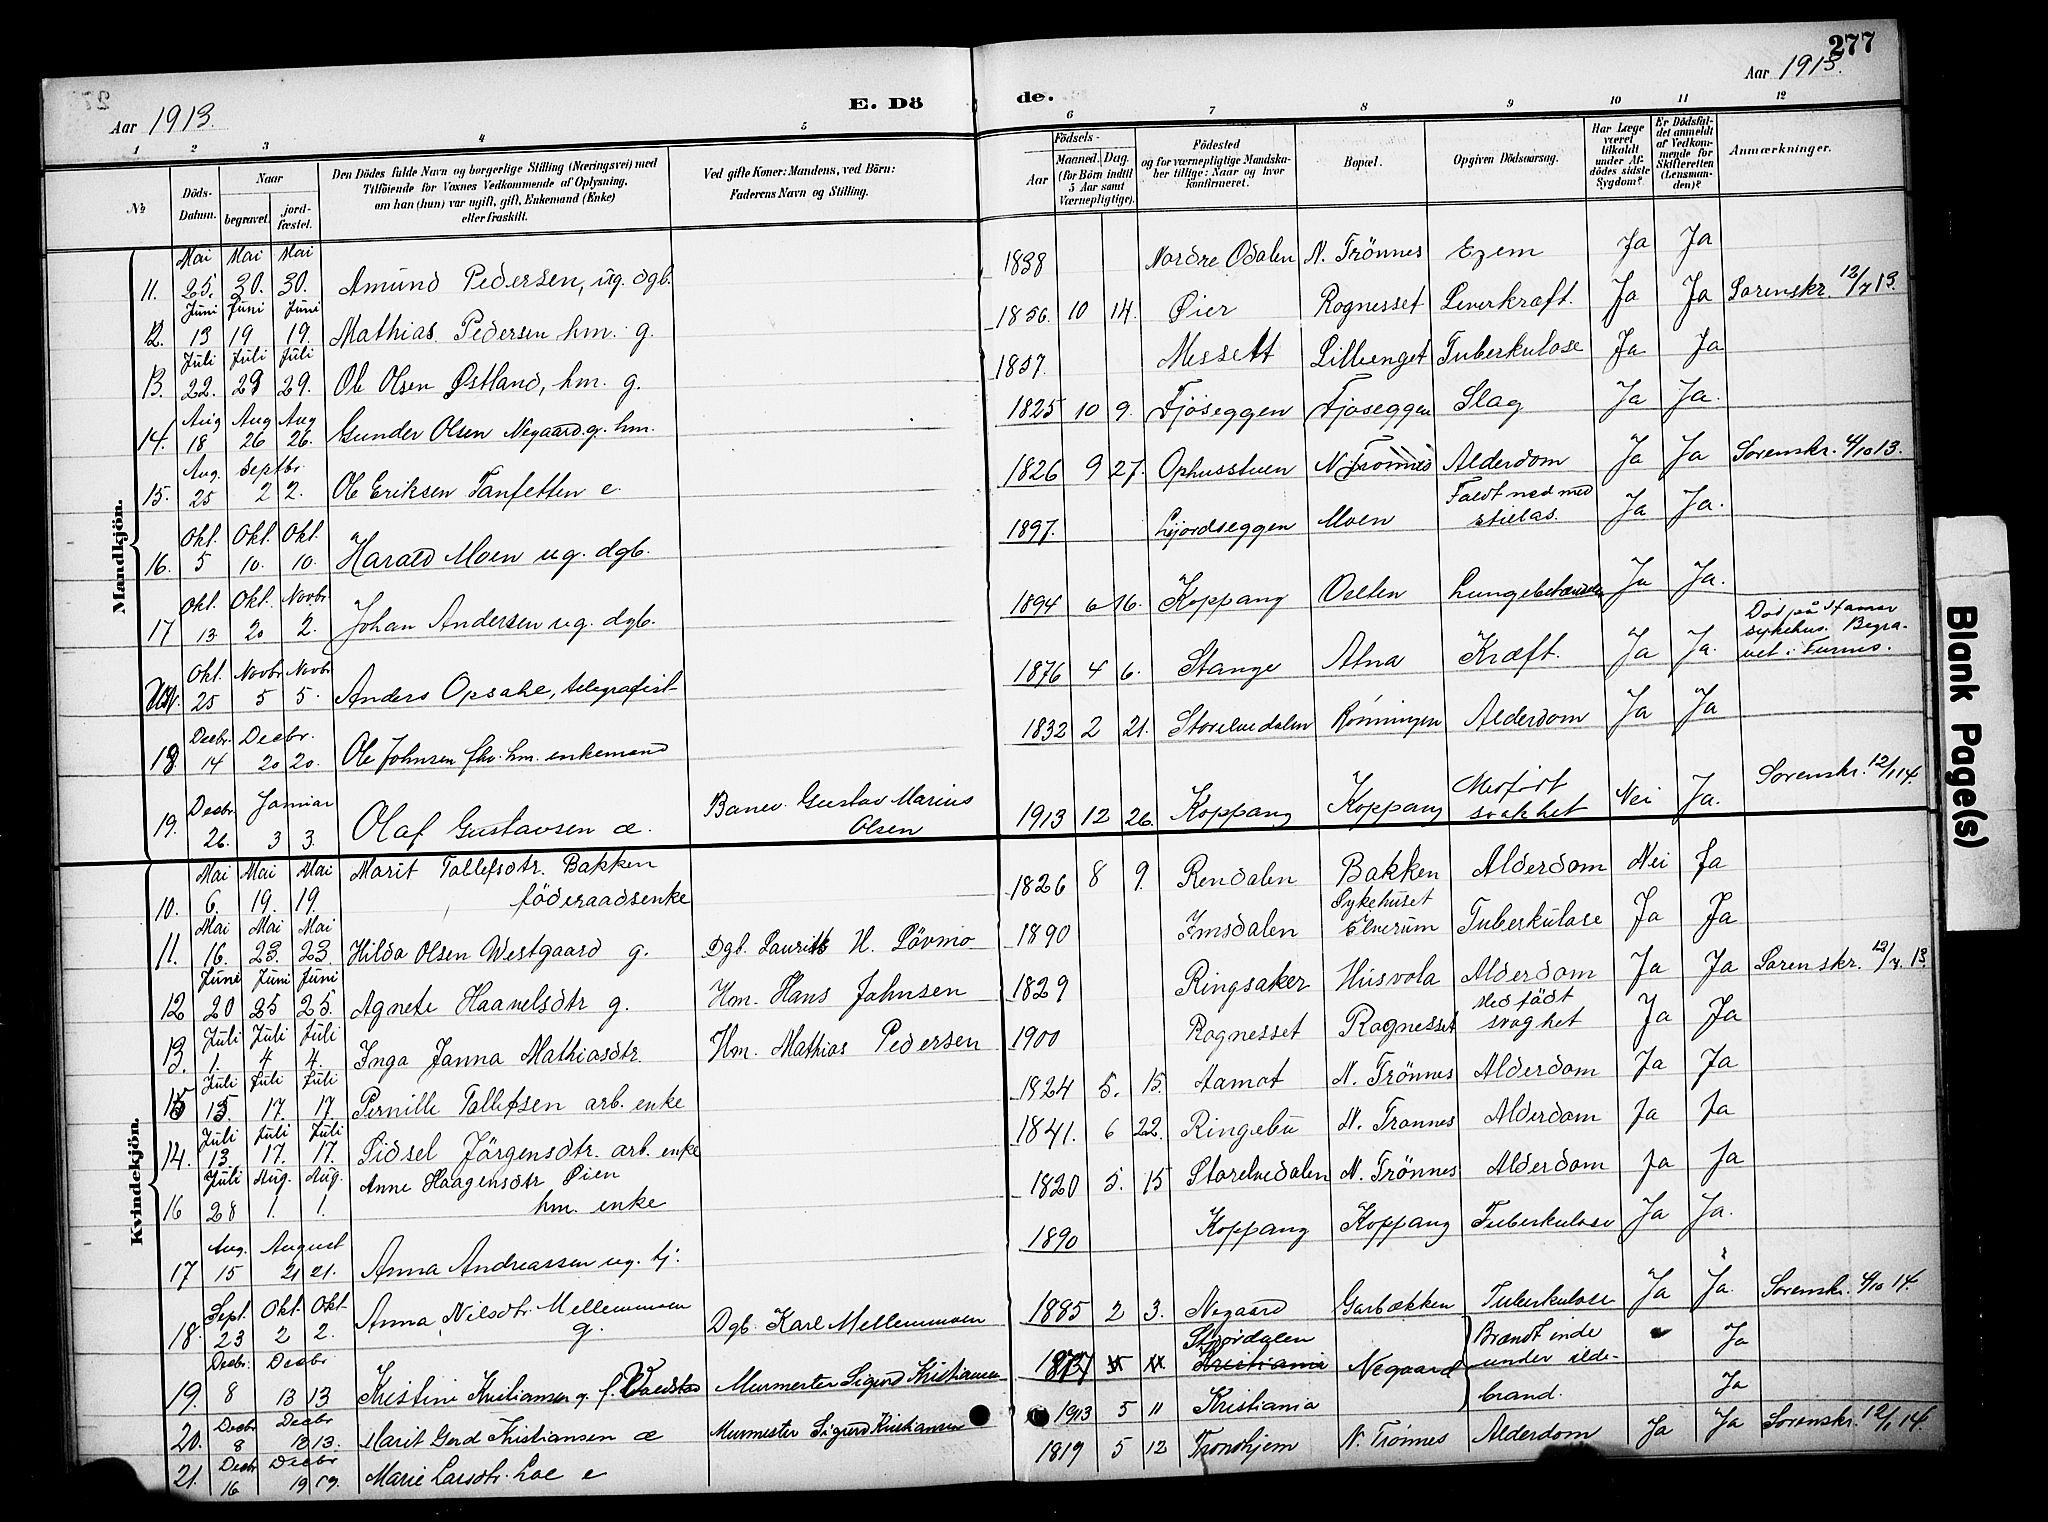 277
Aar 1913. E. Dö de. Aar 1913.
1 2 3 4 5 6 7 8 9 10 11 12
№
Döds-Datum.
Naar
begravet.
jord-fæstet.
Den Dödes fulde Navn og borgerlige Stilling (Næringsvei) med
Tilföiende for Voxnes Vedkommende af Oplysning,
om han (hun) var ugift, gift, Enkemand (Enke)
eller fraskilt.
Ved gifte Koner: Mandens, ved Börn:
Faderens Navn og Stilling.
Födsels-
Aar
Maaned. Dag.
(for Börn indtil
5 Aar samt
Værnepligtige).
Födested
og for værnepligtige Mandska-
ber tillige: Naar og hvor
konfirmeret.
Bopæl.
Opgiven Dödsaarsag.
Har Læge
været
tilkaldt
under Af-
dödes sidste
Sygdom?
Er Dödsfal-
det anmeldt
af Vedkom-
mende for
Skifteretten
(Lensman-
den)?
Anmærkninger.
Mandkjön.
11. Mai 25. Mai 30. Mai 30. Amund Pedersen, ug. dgb. 1838 Nordre Odalen N. Trönnes Ezem Ja Ja
12. Juni 13 Juni 19 Juni 19. Mathias Pedersen hm. g. 1856. 10 14. Øier Rognesset Leverkraft. Ja Ja Sorenskr. 12/7 13.
13. Juli 22. Juli 29 Juli 29. Ole Olsen Østland, hm. g. 1857. Messelt Lilleenget Tuberkulose Ja Ja
14. Aug 18 Aug 26 Aug 26. Gunder Olsen Negaard. g. hm. 1825 10 9. Fjöseggen Fjoseggen Slag Ja Ja.
15. Aug. 25 Septbr. 2 2. Ole Eriksen Tanfetten e. 1826 9 27. Ophusstuen N. Trönnes Alderdom Ja Ja Sorenskr. 4/10 13.
16. Okt. 5 Okt. 10. Okt. 10. Harald Moen ug. dgb. 1897. Moen Faldt ned med Ja Ja.
17 Okt. 13. Okt. 20 Novbr 2. Johan Andersen ug. dgb. 1894 6 16. Koppang Ja Ja.
Okt. 25 Novbr 5 Novbr 5. Anders Opsahl, telegrafist 1876 4 6. Stange Atna Kræft. Ja Ja. Död på Hamar
sykehus. Begra-
vet i Furnes.
18. Decbr. 14 Decbr. 20 20. Ole Johnsen fhv. hm. enkemand 1832 2 21. Storelvedalen Rönningen Alderdom Ja Ja
19. Decbr 26. Januar 3 3. Olaf Gustavsen æ. Banev. Gustav Marius
Olsen 1913 12 26. Koppang Koppang Medfödt
svakhet Nei Ja. Sorenskr. 12/1 14.
Kvindekjön.
10. Mai 6. Mai 19. Mai 19. Marit Tollefsdtr. Bakken
föderaadsenke 1826 8 9. Rendalen Bakken Alderdom Nei Ja
11. Mai 16. Mai 23. Mai 23 Hilda Olsen Westgaard g. Dgb. Laurits H. Lövmo 1890 Imsdalen Sykehuset
Elverum Tuberkulose Ja Ja
12 Juni 20 Juni 25 Juni 25. Agnete Haavelsdtr g. Hm. Hans Johnsen 1829 Ringsaker Husvola Alderdom Ja Ja Sorenskr. 12/7. 13.
13. Juli 1. Juli 4. Juli 4. Inga Janna Mathiasdtr. Hm. Mathias Pedersen 1900 Rognesset Rognesset Medfödt
svaghet Ja Ja
15 Juli 15. Juli 17. Juli 17. Pernille Tollefsen arb. enke 1824 5. 15. Aamot N. Trönnes Alderdom Ja Ja
14. Juli 13 Juli 17. Juli 17. Sidsel Jörgensdtr. arb. enke 1841. 6 22. Ringebu N. Trönnes Alderdom Ja Ja
16 Juli 28 Aug. 1. Aug. 1. Anne Haagensdtr Øien
hm. enke 1820 5. 15 Storelvedalen N. Trönnes Alderdom Ja Ja
17 Aug. 15 August 21 21. Anna Andreassen ug. tj. 1890 Koppang Koppang Tuberkulose Ja Ja.
18. Sept. 23 Okt. 2 Okt. 2. Anna Nilsdtr. Mellemmoen
g. Dgb. Karl Mellemmoen 1885 2 3. Negaard Garbækken Tuberkulose Ja Ja. Sorenskr. 4/10 14.
19. Decbr. 8 Decbr 13 13 Kristine Kristiansen g. f. Murmester Sigurd Kristiansen Stjördalen
Kristiania Negaard Brændt inde
under ilde-
brand. Ja
20. Decbr 8 Decbr 13 13. Marit Gerd Kristiansen æ Murmester Sigurd Kristiansen 1913 5 11 Kristiania Ja
21. Decbr 16 Decbr 19 19. Marie Larsdtr. Loe e 1819 5 12 Trondhjem N. Trönnes Alderdom Ja Ja Sorenskr. 12/1 14.
Blank Page(s)